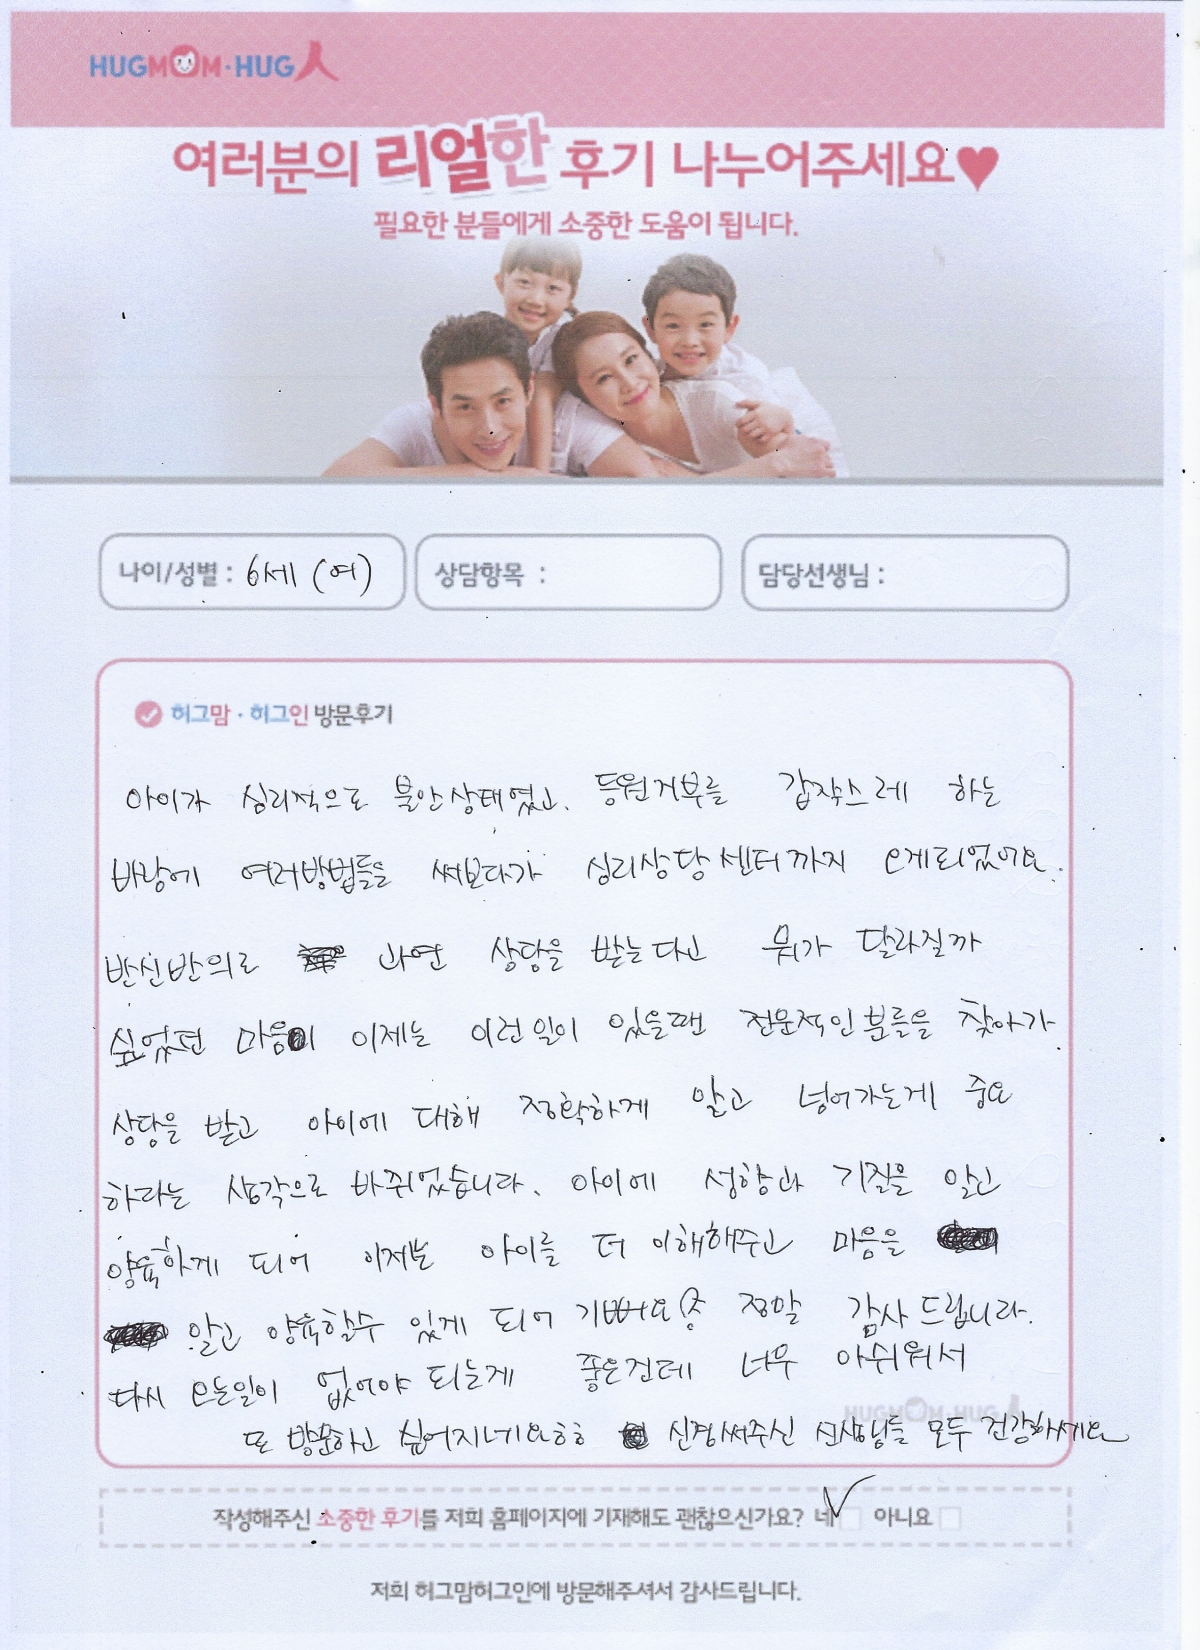 HUGMOM·HUG人
여러분의 리얼한 후기 나누어주세요♥
필요한 분들에게 소중한 도움이 됩니다.
나이/성별 : 6세 (여)
상담항목 :
담당선생님 :
허그맘 · 허그인 방문후기
아이가 심리적으로 불안상태였고, 등원거부를 갑작스레 하는
바람에 여러방법들을 써보다가 심리상담센터까지 오게되었어요.
반신반의로 과연 상담을 받는다고 뭐가 달라질까
싶었던 마음이 이제는 이런일이 있을땐 전문적인분들을 찾아가
상담을 받고 아이에 대해 정확하게 알고 넘어가는게 중요
하다는 생각으로 바뀌었습니다. 아이에 성향과 기질을 알고
양육하게 되어 이제는 아이를 더 이해해주고 마음을
알고 양육할수 있게 되어 기뻐요^^ 정말 감사드립니다.
다시 오는일이 없어야 되는게 좋은건데 너무 아쉬워서
또 방문하고 싶어지네요ㅎㅎ 신경써주신 선생님들 모두 건강하세요
HUGMOM·HUG人
작성해주신 소중한 후기를 저희 홈페이지에 기재해도 괜찮으신가요? 네 아니요
저희 허그맘허그인에 방문해주셔서 감사드립니다.